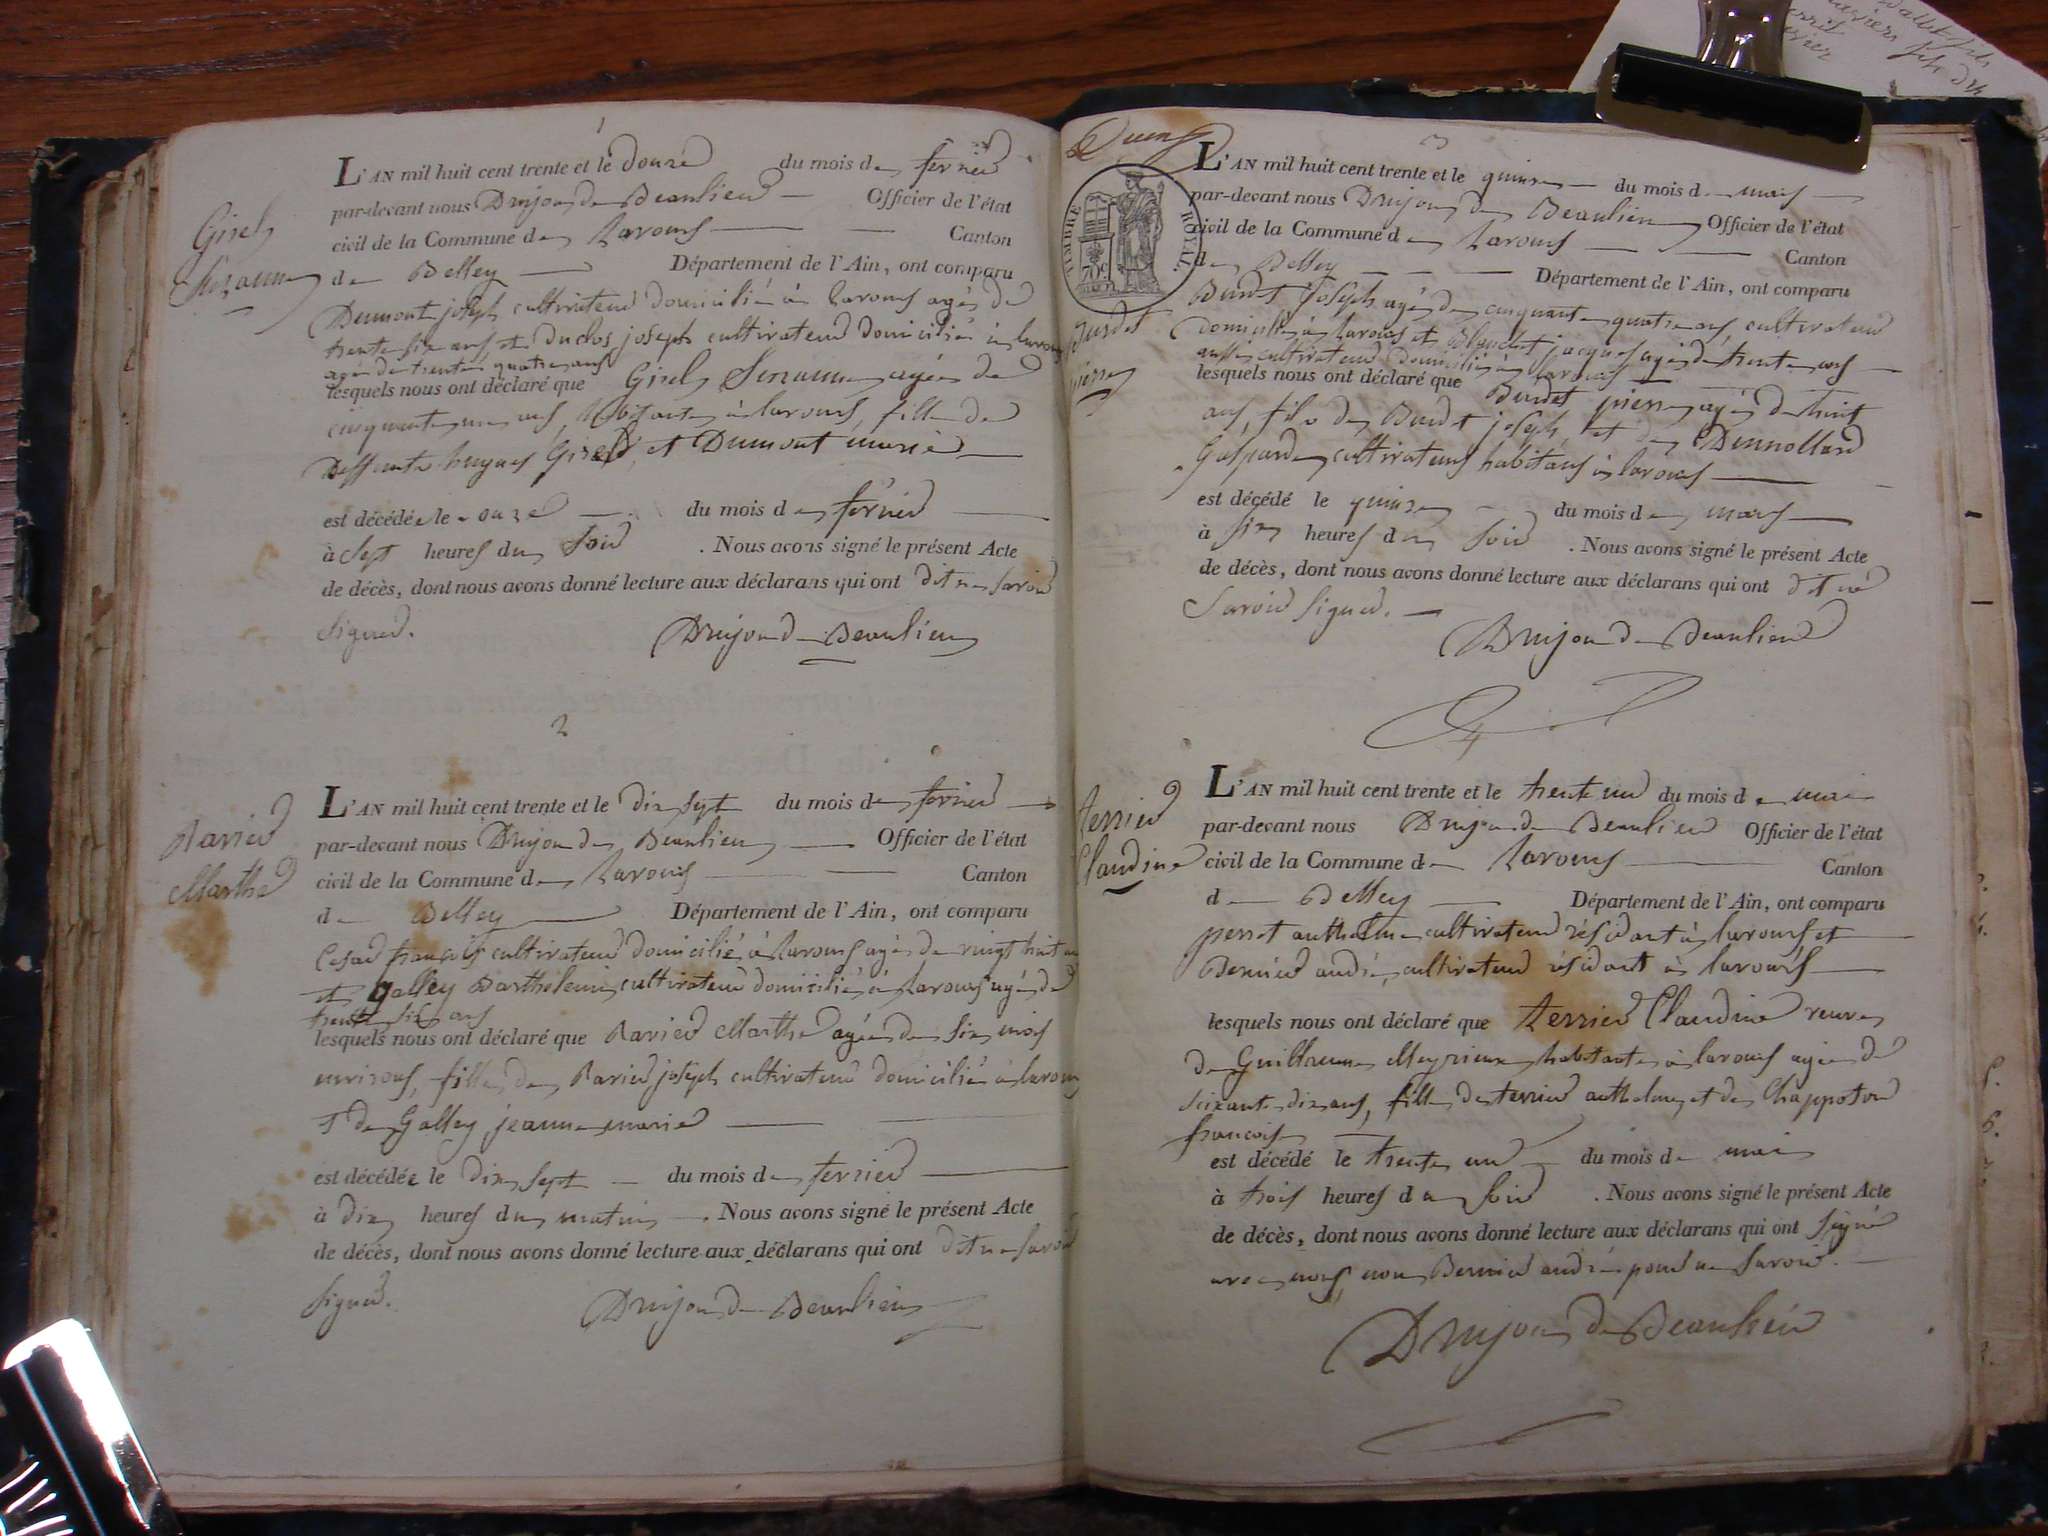 1
L'AN mil huit cent trente et le douze du mois de fevrier
par-devant nous Drujon de Beaulieu Officier de l'état
civil de la Commune de Lavours Canton
de Belley Département de l'Ain, ont comparu
Gisel
Suzanne
Dumont joseph cultivateur domicilié à lavours agé de
trente six ans et Duclos joseph cultivateur domicilié à lavours
agé de trente quatre ans
lesquels nous ont déclaré que Gisel Suzanne agée de
cinquante un ans, habitante à lavours, fille de
deffunts hugues Gisel et Dumont marie
est décédée le onze du mois de fevrier
à sept heures du soir . Nous avons signé le présent Acte
de décès, dont nous avons donné lecture aux déclarans qui ont dit ne savoir
signer.
Drujon de Beaulieu
2
L'AN mil huit cent trente et le dix sept du mois de fevrier
par-devant nous Drujon de Beaulieu Officier de l'état
civil de la Commune de Lavours Canton
de Belley Département de l'Ain, ont comparu
Ravier
Marthe
Cesar françois cultivateur domicilié à lavours agé de vingt huit ans
et Galley Barthelemi cultivateur domicilié à Lavours agé de
trente six ans
lesquels nous ont déclaré que Ravier Marthe agée de six mois
environs, fille de Ravier joseph cultivateur domicilié à lavours
et de Galley jeanne marie
est décédée le dix sept du mois de fevrier
à dix heures du matin . Nous avons signé le présent Acte
de décès, dont nous avons donné lecture aux déclarans qui ont dit ne savoir
signer.
Drujon de Beaulieu
3
TIMBRE ROYAL.
70c
L'AN mil huit cent trente et le quinze du mois de mars
par-devant nous Drujon de Beaulieu Officier de l'état
civil de la Commune de Lavours Canton
de Belley Département de l'Ain, ont comparu
Burdet
pierre
Burdet joseph agé de cinquante quatre ans cultivateur
domicilié à lavours et jacques agé de trente ans
aussi cultivateur domicilié à lavours
lesquels nous ont déclaré que Burdet pierre agé de huit
ans, fils de Burdet joseph et de
Gasparde cultivateurs habitans à lavours
est décédé le quinze du mois de mars
à six heures du soir . Nous avons signé le présent Acte
de décès, dont nous avons donné lecture aux déclarans qui ont dit ne
savoir signer.
Drujon de Beaulieu
4
L'AN mil huit cent trente et le trente un du mois de mai
par-devant nous Drujon de Beaulieu Officier de l'état
civil de la Commune de Lavours Canton
de Belley Département de l'Ain, ont comparu
terrier
Claudine
perrot anthelme cultivateur résidant à lavours et
Bernier andré cultivateur résidant à lavours
lesquels nous ont déclaré que terrier Claudine veuve
de Guillaume Meyrieux habitante à lavours agée de
soixante dix ans, fille de terrier anthelme et de Chapoton
françoise
est décédé le trente un du mois de mai
à trois heures du soir . Nous avons signé le présent Acte
de décès, dont nous avons donné lecture aux déclarans qui ont signé
avec nous, non Bernier andré pour ne savoir.
Drujon de Beaulieu